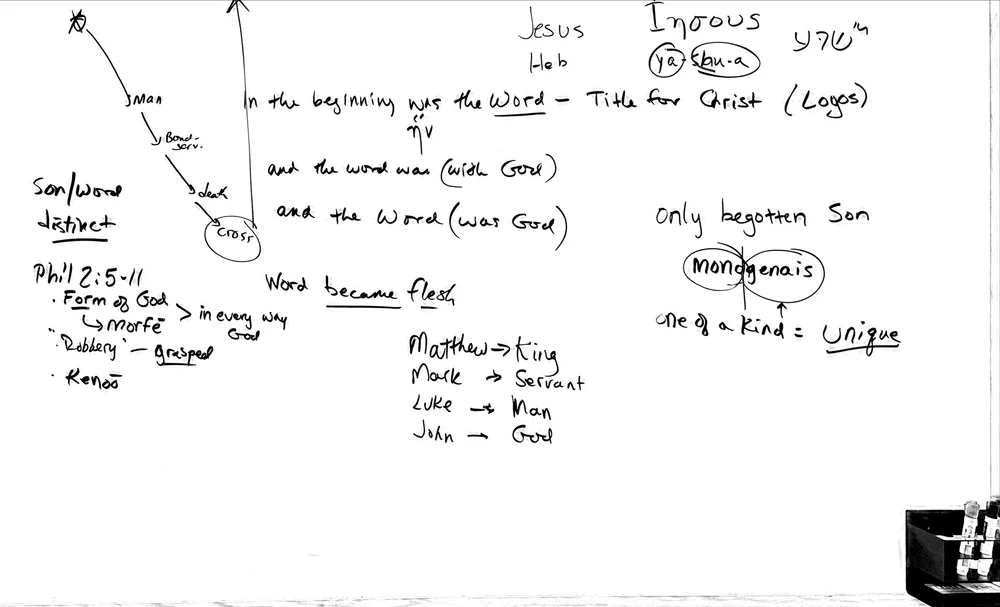 Jesus Iησους
Heb yā-shu-a
In the beginning was the Word – Title for Christ (Logos)
ην
and the word was (with God)
and the Word (was God)
Man
Bond-
serv.
death
Cross
Son/Word
distinct
Phil 2:5-11
· Form of God > in every way
God
↳ Morfē
· "Robbery" – grasped
· Kenoō
Word became flesh
Matthew → King
Mark → Servant
Luke → Man
John → God
only begotten Son
monogenais
one of a kind = unique